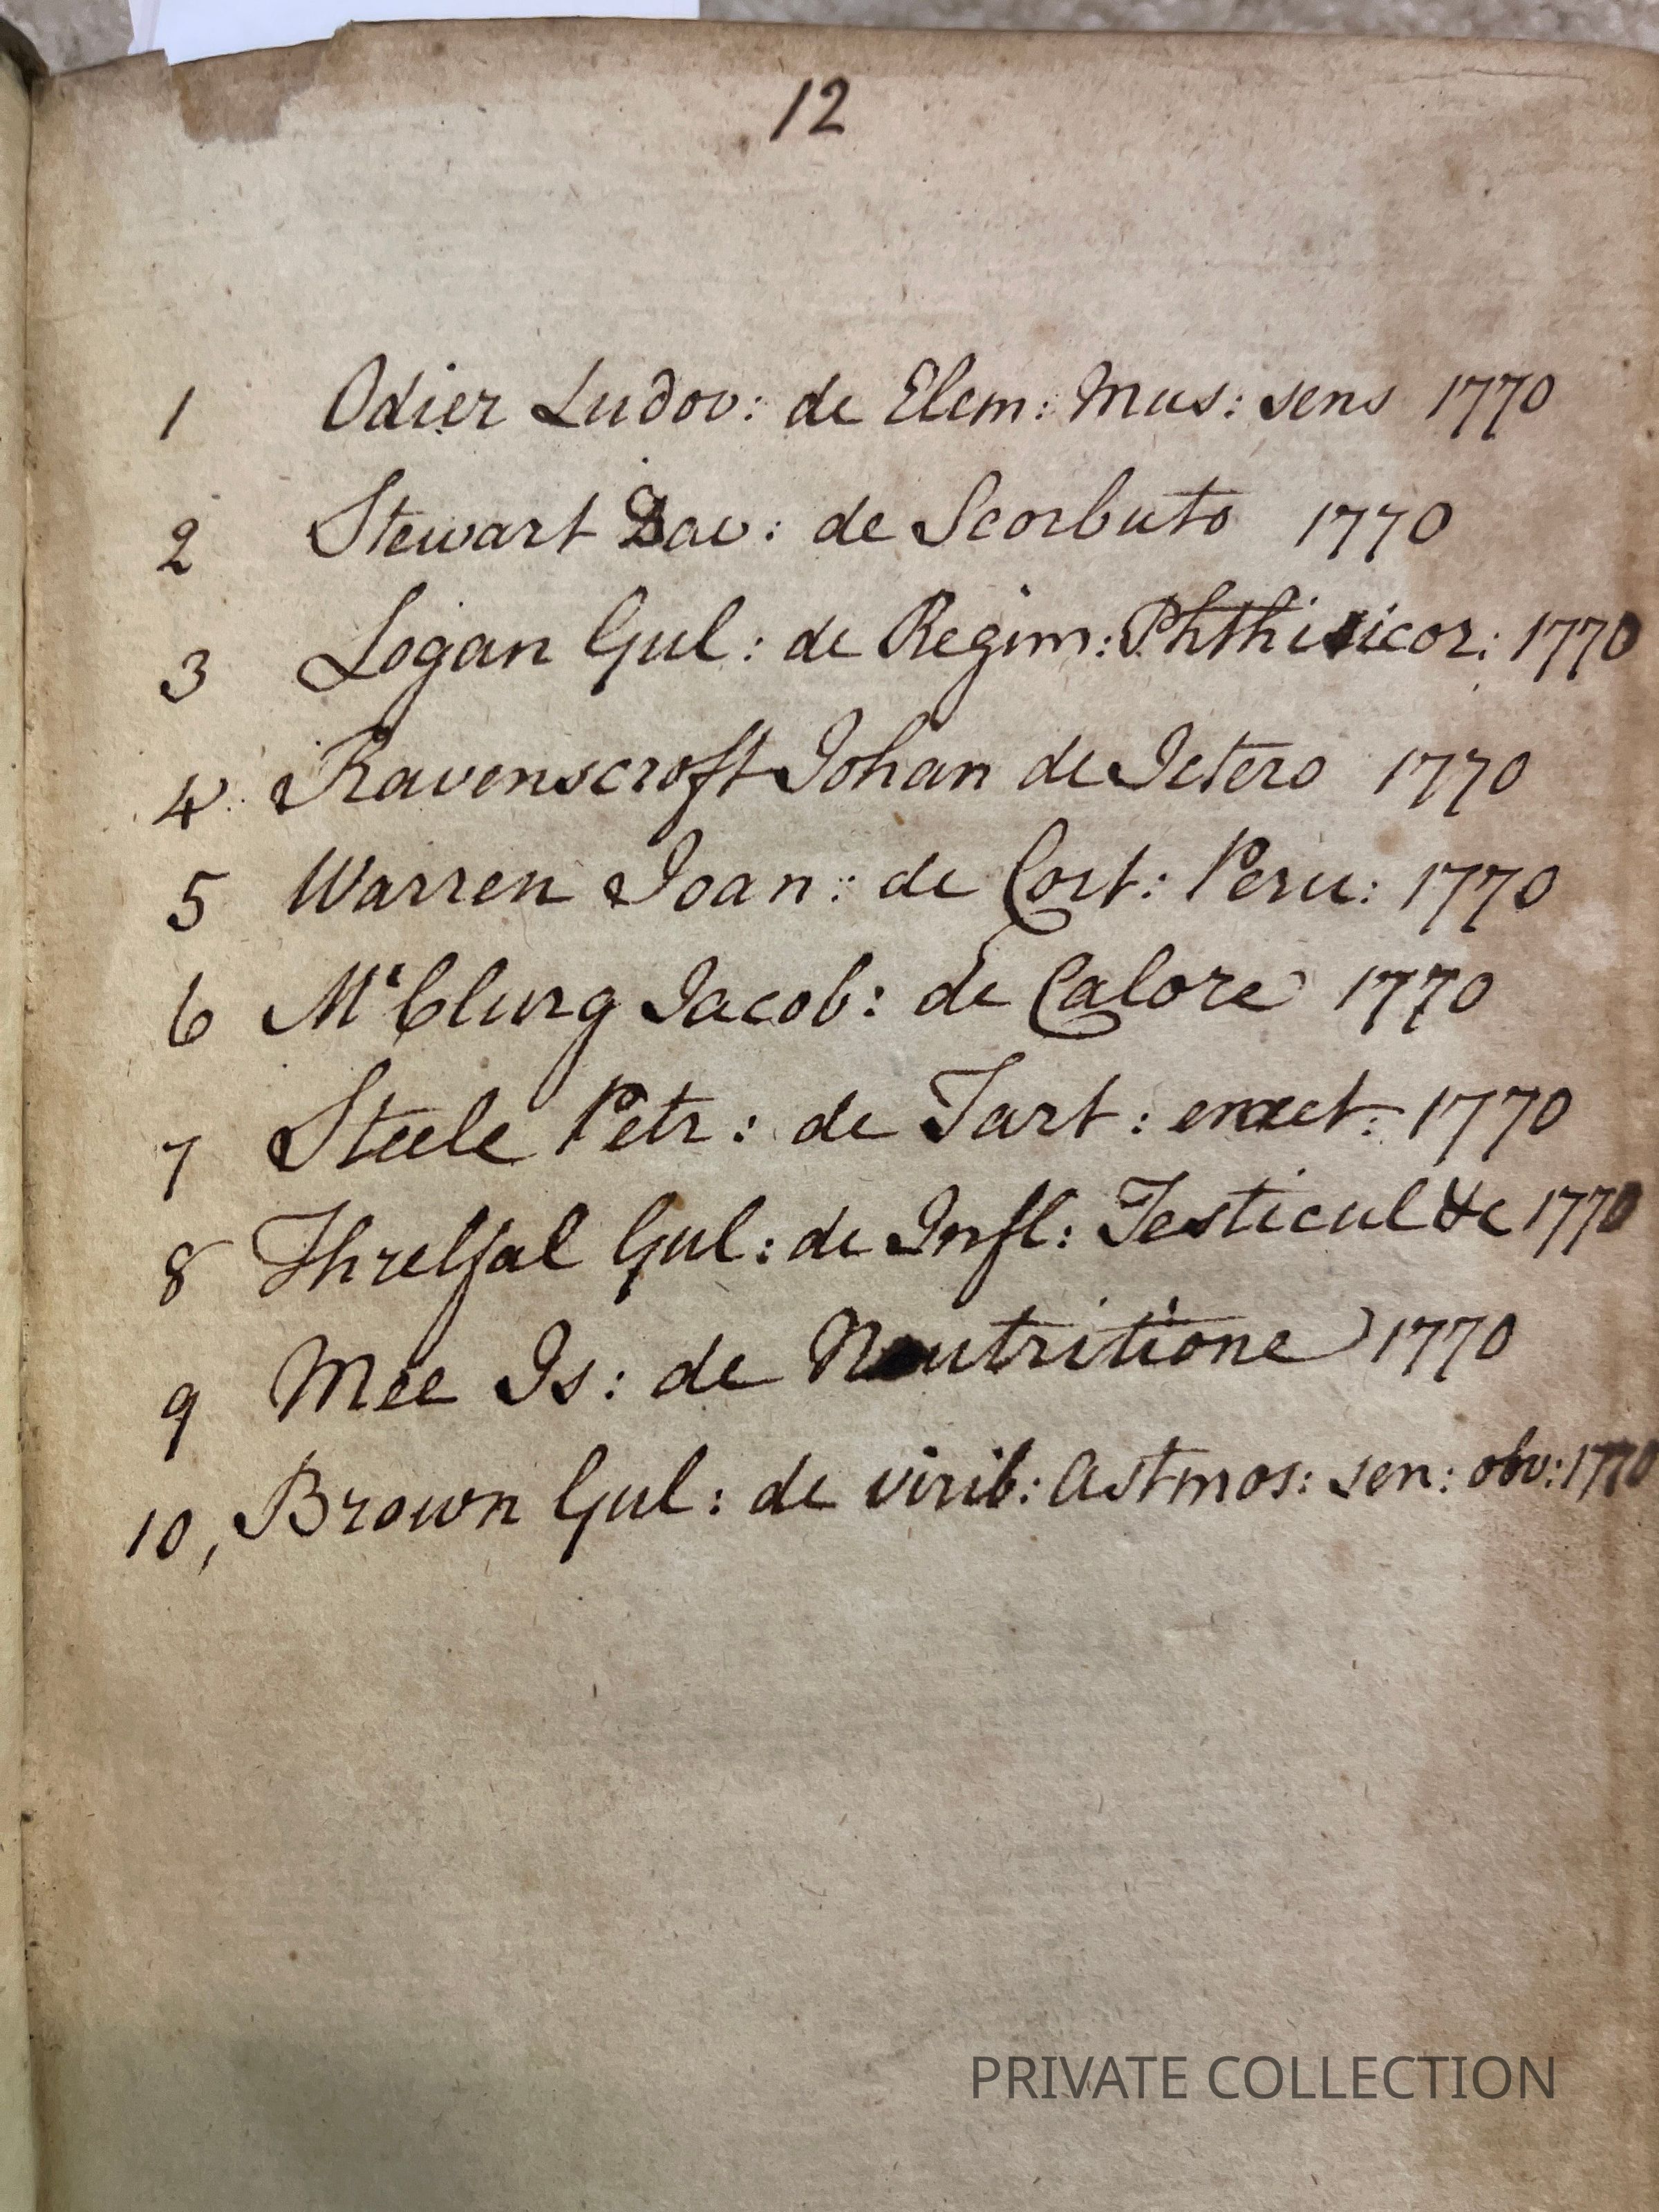 12
1 Odier Ludov: de Elem: Mus: sens 1770
2 Stewart Dav: de Scorbuto 1770
3 Logan Gul: de Regim: Phthisicor: 1770
4 Ravenscroft Johan de Ictero 1770
5 Warren Joan: de Cort: Peru: 1770
6 McClurg Jacob: de Calore 1770
7 Steele Petr: de Tart: 1770
8 Threlfal Gul: de Infl: Testicul &c 1770
9 Mee Is: de Nutritione 1770
10, Brown Gul: de virib: Astmos: sen: obv: 1770
PRIVATE COLLECTION